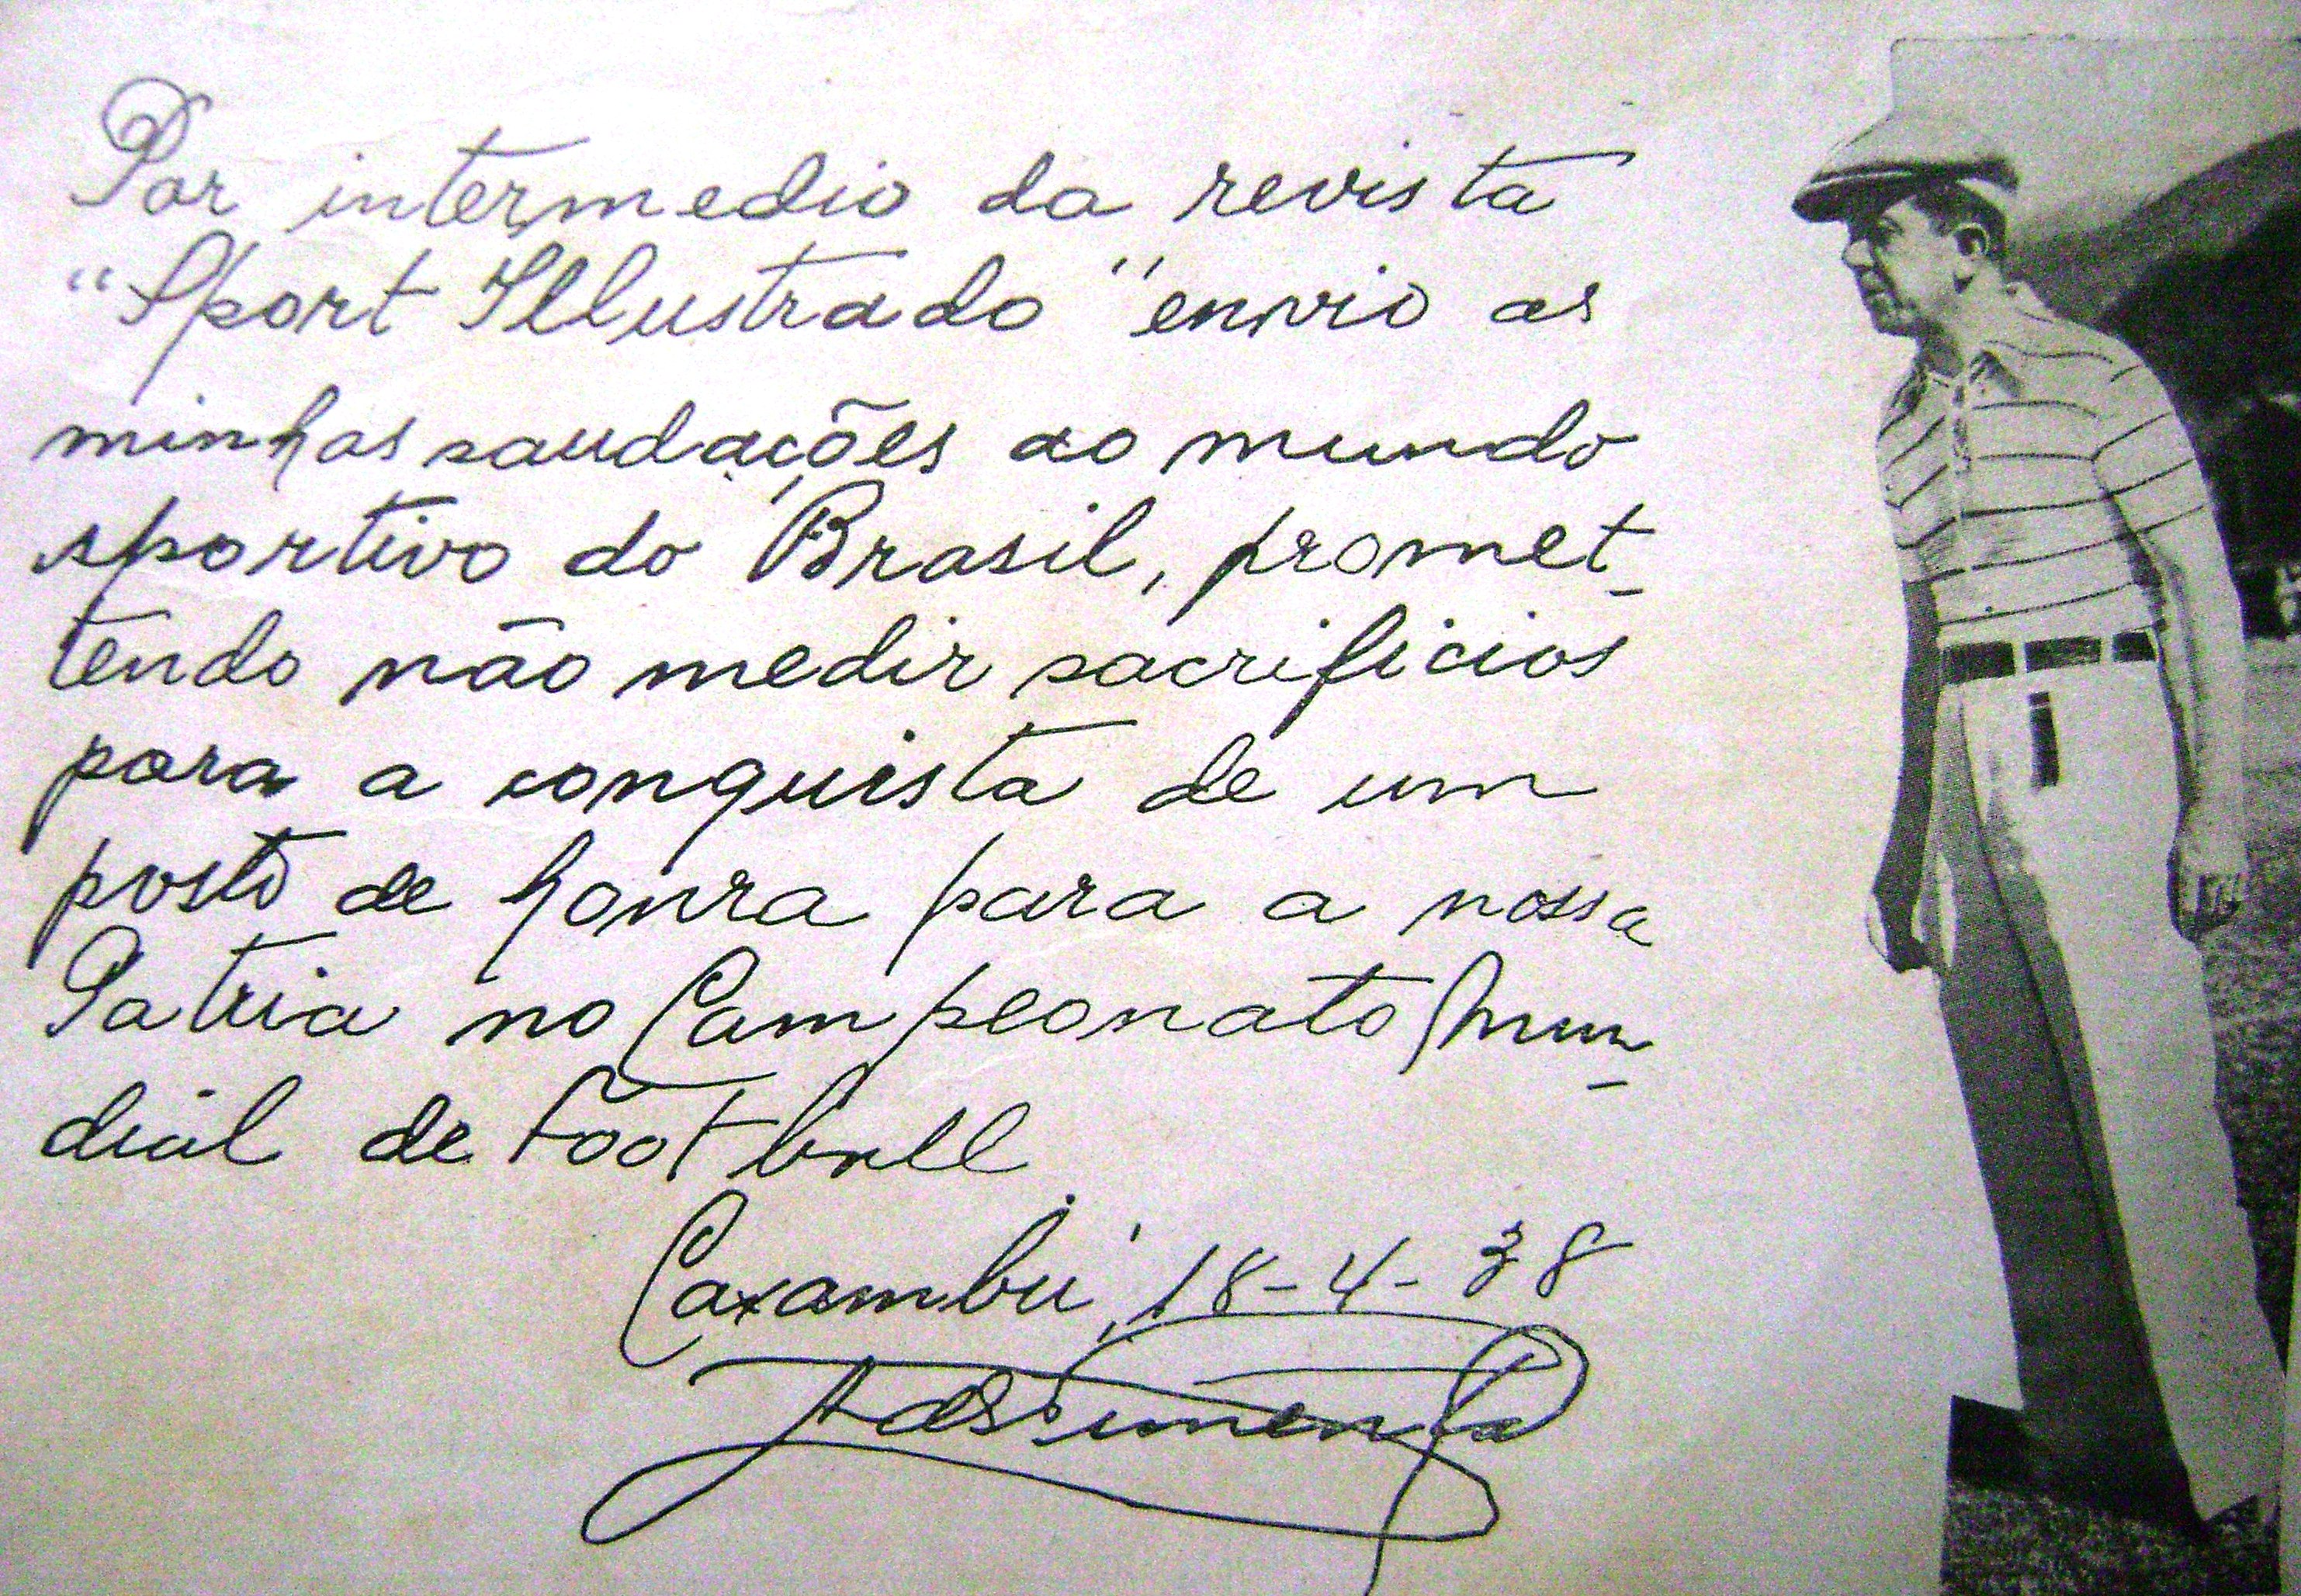 Por intermedio da revista
"Sport Illustrado" envio as
minhas saudações ao mundo
sportivo do Brasil, promet-
tendo não medir sacrificios
para a conquista de um
posto de honra para a nossa
Patria no Campeonato Mun-
dial de Foot ball
Caxambú, 18-4-38